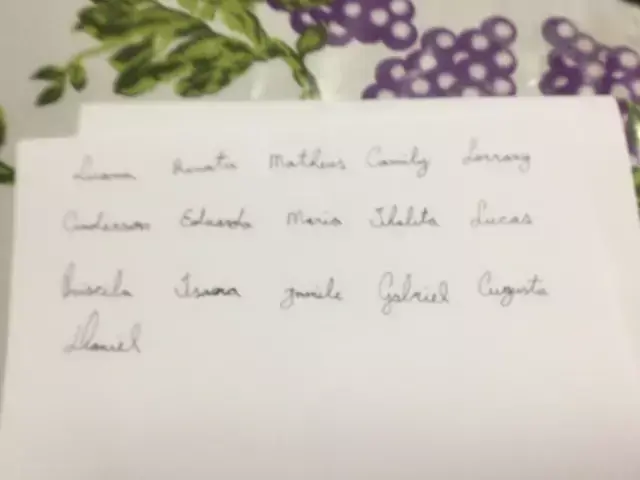 Luana Renata Matheus Camily Lorrany
Anderson Eduardo Maria Thalita Lucas
Priscila Isaura Jamile Gabriel Augusto
Daniel